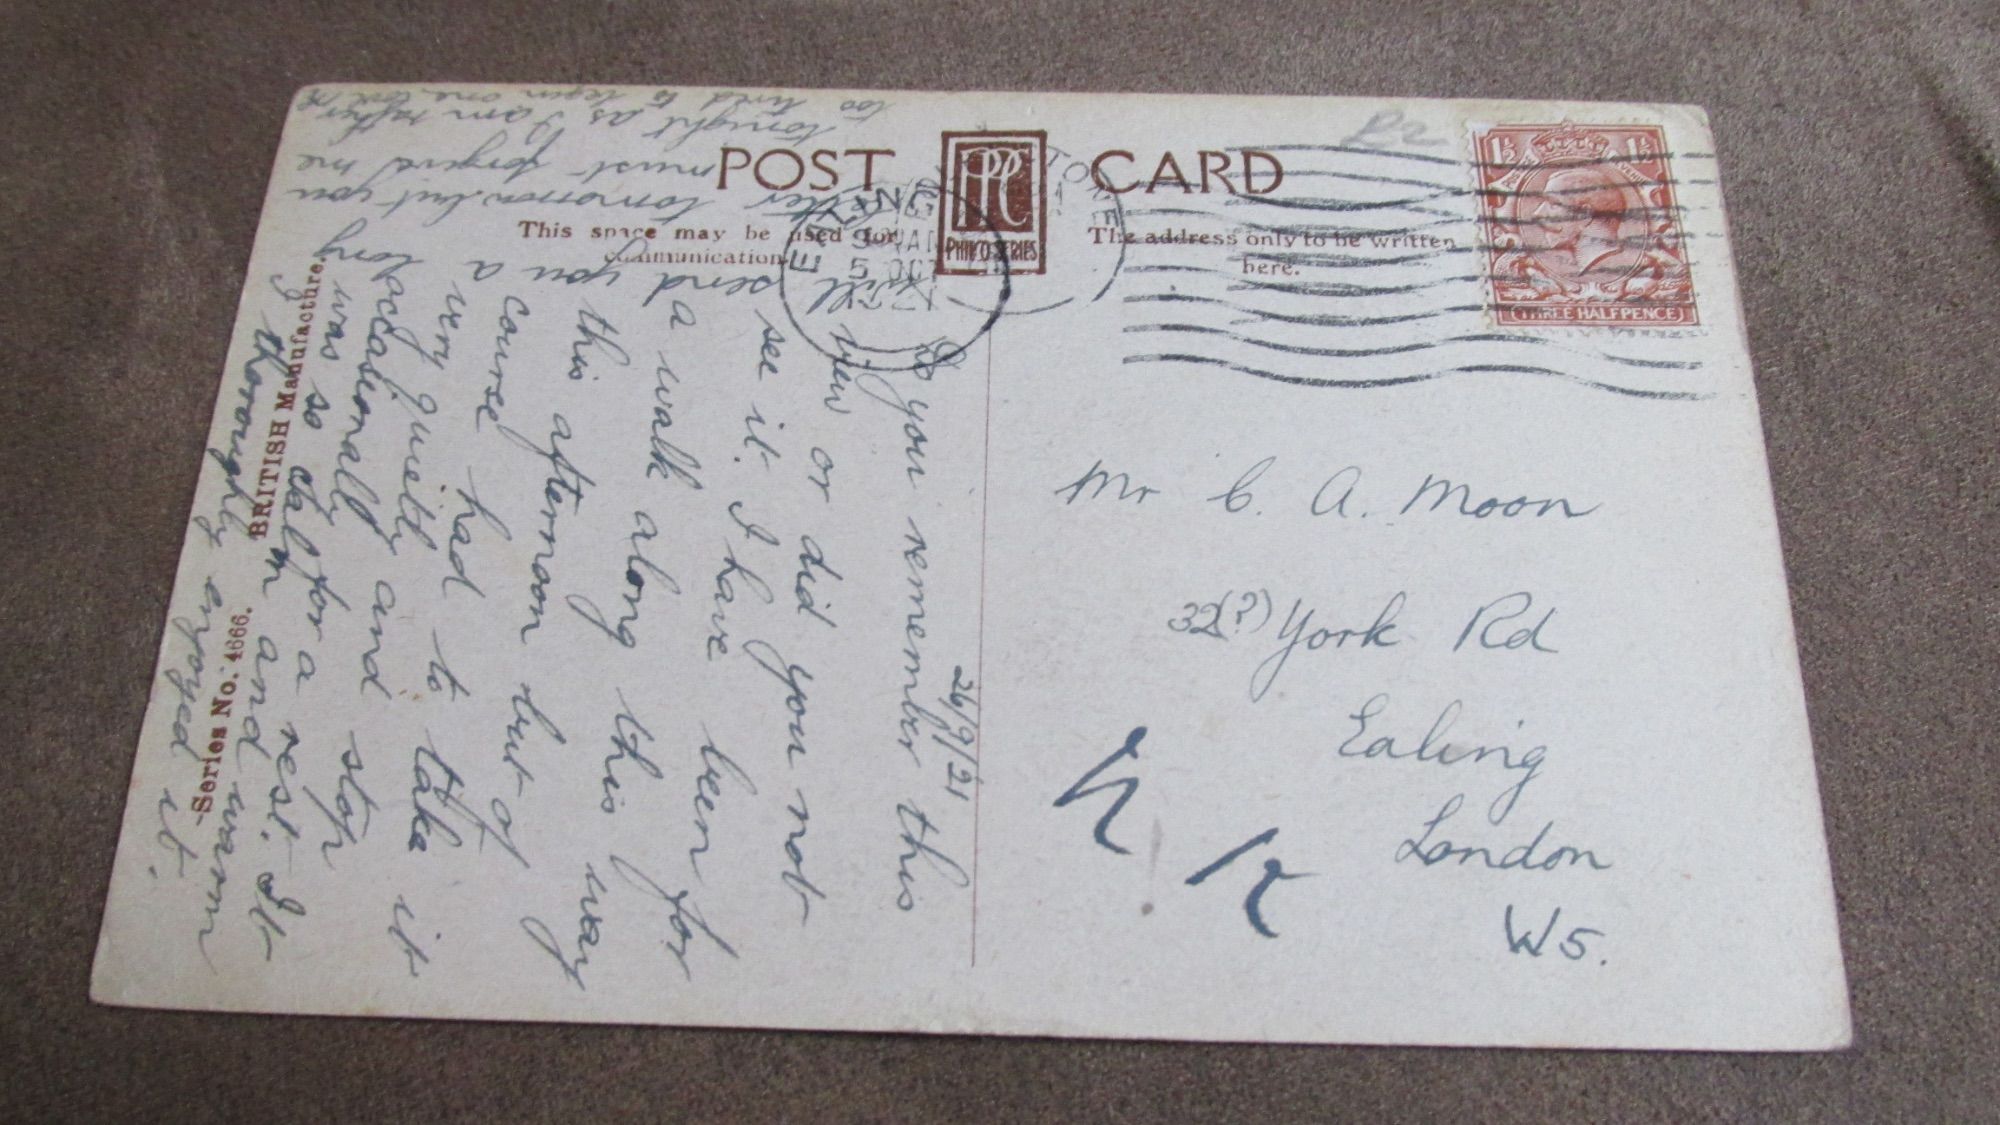 POST CARD
This space may be used for communication.
The address only to be written here.
PHILCO SERIES
1½ 1½
(THREE HALFPENCE)
EALING
5 OC
1921
BRITISH Manufacture.
Series No. 4666.
26/9/21
Do you remember this
view or did you not
see it. I have been for
a walk along this way
this afternoon but of
course had to take it
very quietly and stop
occasionally for a rest. It
was so calm and warm
thoroughly enjoyed it.
Will send you a long
letter tomorrow but you
must forgive me
tonight as I am rather
too tired to begin one. love
Mr C. A. Moon
32(?) York Rd
Ealing
London
W5.